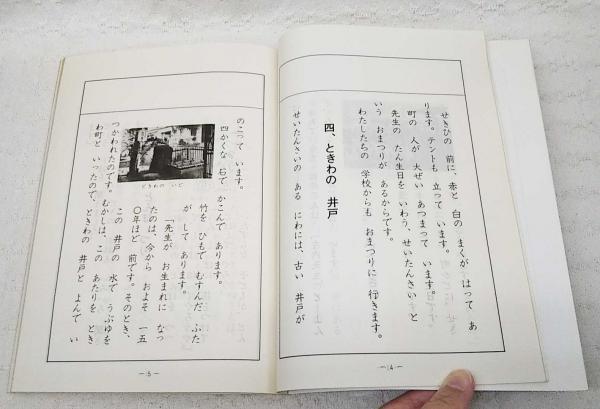 せきひの 前に、赤と 白の まくが はって あ
ります。テントも 立って います。
町の 人が 大ぜい あつまって います。
先生の たん生日を いわう、せいたんさい と
いう おまつりが あるからです。
わたしたちの 学校からも おまつりに 行きます。
四、ときわの 井戸
せいたんさいの ある にわには、古い 井戸が
―14―
のこって います。
四かくな 石で かこんで あります。
竹を ひもで むすんだ ふた
が して あります。
「先生が お生まれに なっ
たのは、今から およそ 一五
〇年ほど 前です。そのとき、
この 井戸の 水で うぶゆを
つかわれたのです。むかしは、この あたりを とき
わ町と いったので、ときわの 井戸と よんで い
ときわの いど
―15―